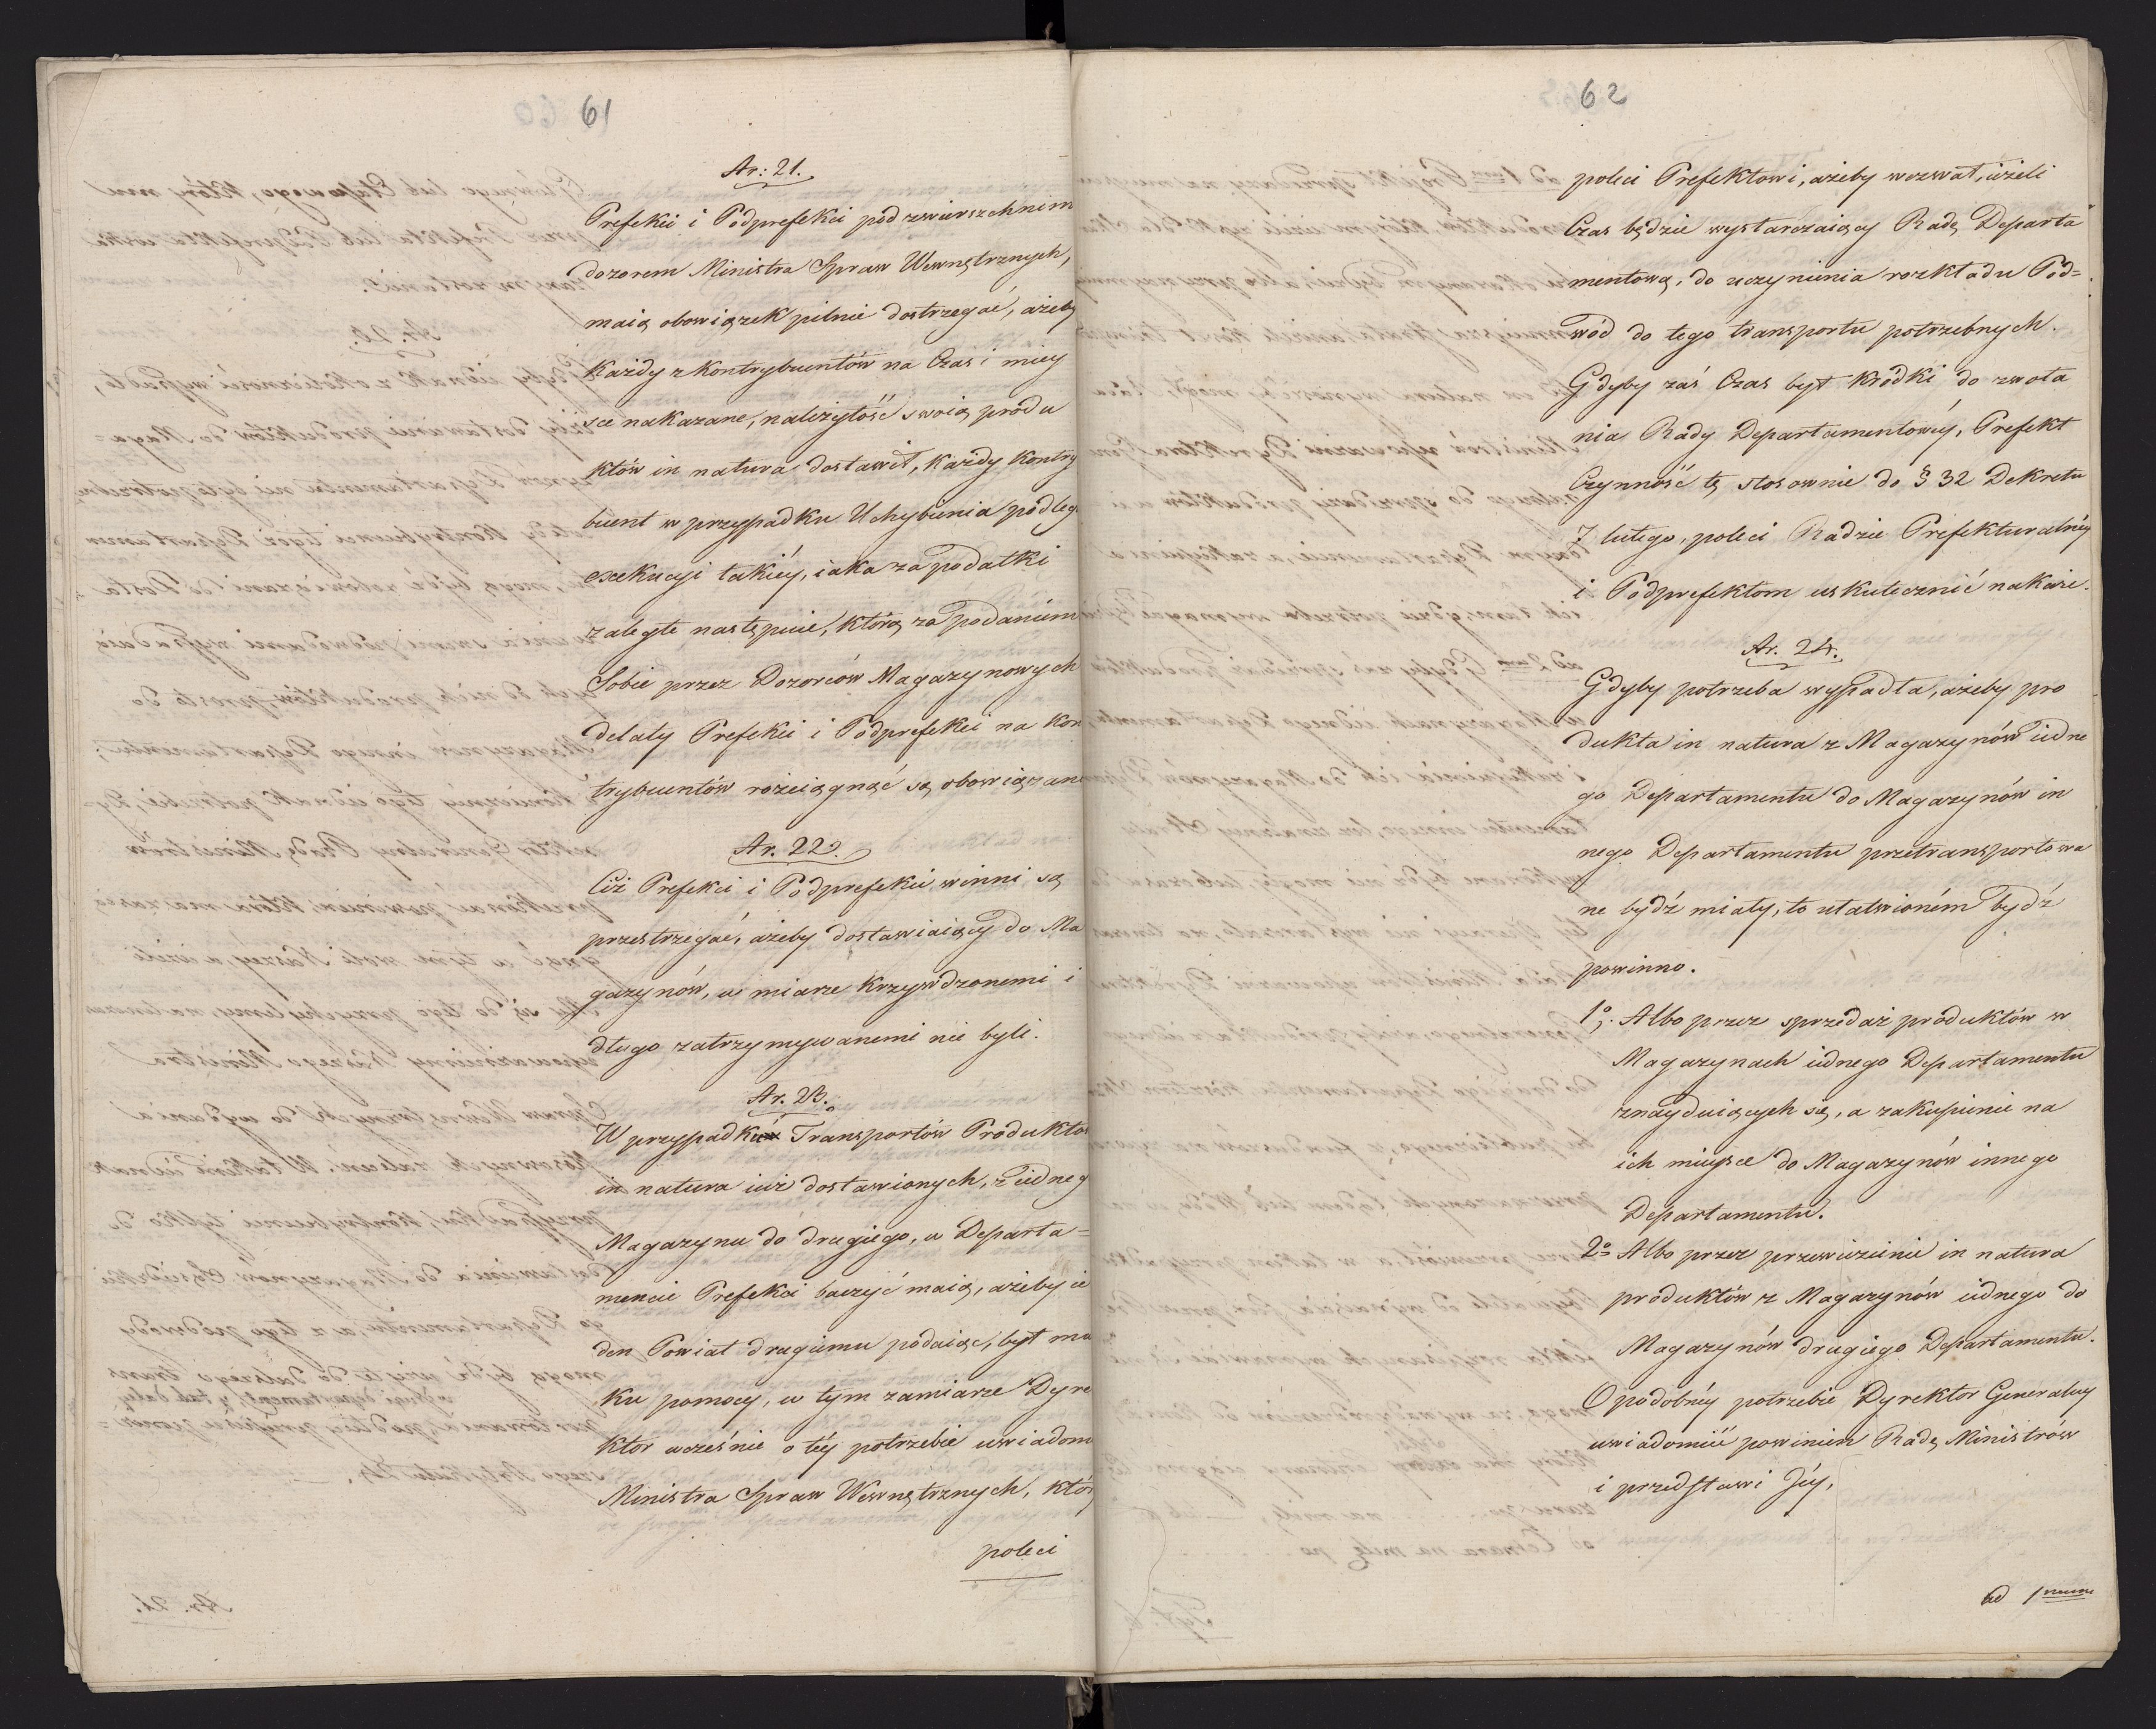 61
Ar: 21.
Prefekci i Podprefekci pod zwierszchnim
dozorem Ministra Spraw Wewnętrznych,
maią obowiązek pilnie dostrzegać, ażeby
każdy z kontrybuentów na Czas i miey
sce nakazane, należytość swoią produ
któw in natura dostawił, każdy kontry
buent w przypadku Uchybienia podleg
exekucyi takiéy, iaka za podatki
zaległe następuie, którą za podaniem
Sobie przez Dozorców Magazynowych
delaty Prefekci i Podprefekci na kon
trybuentów rościągnąć są obowiązane
Ar. 22.
Ciż Prefekci i Podprefekci winni są
przestrzegać, ażeby dostawiaiący do Ma
gazynów, w miarze krzywdzonemi i
długo zatrzymywanemi nie byli.
Ar. 23.
W przypadku Transportów Produktów
in natura iuż dostawionych, z iedneg
Magazynu do drugiego, w Departa=
mencie Prefekci baczyć maią, ażeby ie
den Powiat drugiemu podaiąc, był mu
ku pomocy, w tym zamiarze Dyre
ktor wcześnie o téy potrzebie uwiadom
Ministra Spraw Wewnętrznych, któr
poleci
62
poleci Prefektowi, ażeby wezwał, ieżeli
Czas będzie wystarczaiący Radę Departa
mentową, do uczynienia rozkładu Pod=
wód do tego transportu potrzebnych.
Gdyby zaś Czas był krótki do zwoła
nia Rady Departamentowéy, Prefekt
Czynność tę stosownie do § 32 Dekretu
7 lutego, poleci Radzie Prefekturalnéy
i Podprefektom uskutecznić nakaże.
Ar. 24.
Gdyby potrzeba wypadła, ażeby pro
dukta in natura z Magazynów iedne
go Departamentu do Magazynów in
nego Departamentu przetransportowa
ne bydź miały, to ułatwioném bydź
powinno.
1o. Albo przez sprzedaż produktów w
Magazynach iednego Departamentu
znayduiących się, a zakupienie na
ich mieysce do Magazynów innego
Departamentu.
2o Albo przez przewiezienie in natura
produktów z Magazynów iednego do
Magazynów drugiego Departamentu.
O podobnéy potrzebie Dyrektor Generalny
uwiadomić powinien Radę Ministrów
i przedstawi Jéy,
ad 1mum